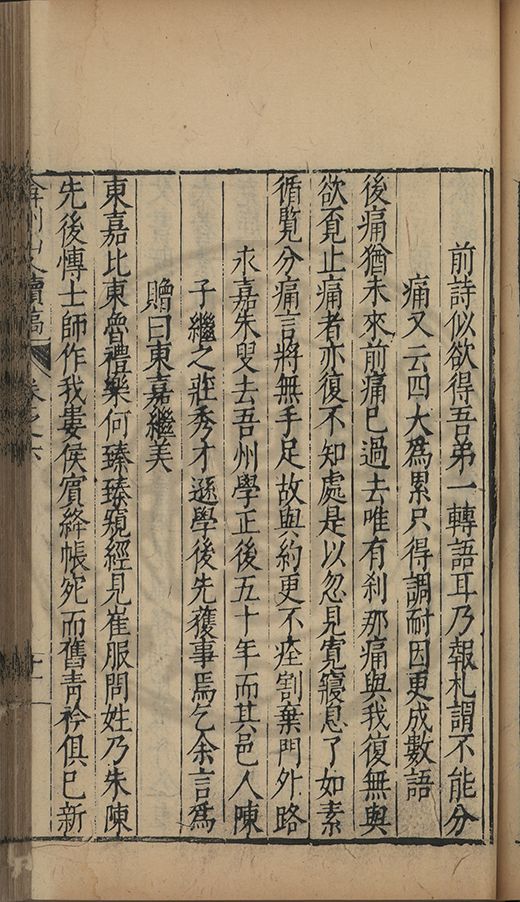 前詩似欲得吾弟一轉語耳乃報札謂不能分
痛又云四大為累只得調耐因更成數語
後痛猶未來前痛已過去唯有刹那痛與我復無與
欲覔止痛者亦復不知處是以忽見寬寢息了如素
循覽分痛言將無手足故與約更不痊割棄門外路
永嘉朱叟去吾州學正後五十年而其邑人陳
子繼之莊秀才遜學後先獲事焉乞余言為
贈曰東嘉繼美
東嘉比東魯禮樂何臻臻窺經見崔服問姓乃朱陳
先後博士師作我婁侯賓絳帳宛而舊青衿俱已新
弇州山人續稿
卷之六
十一